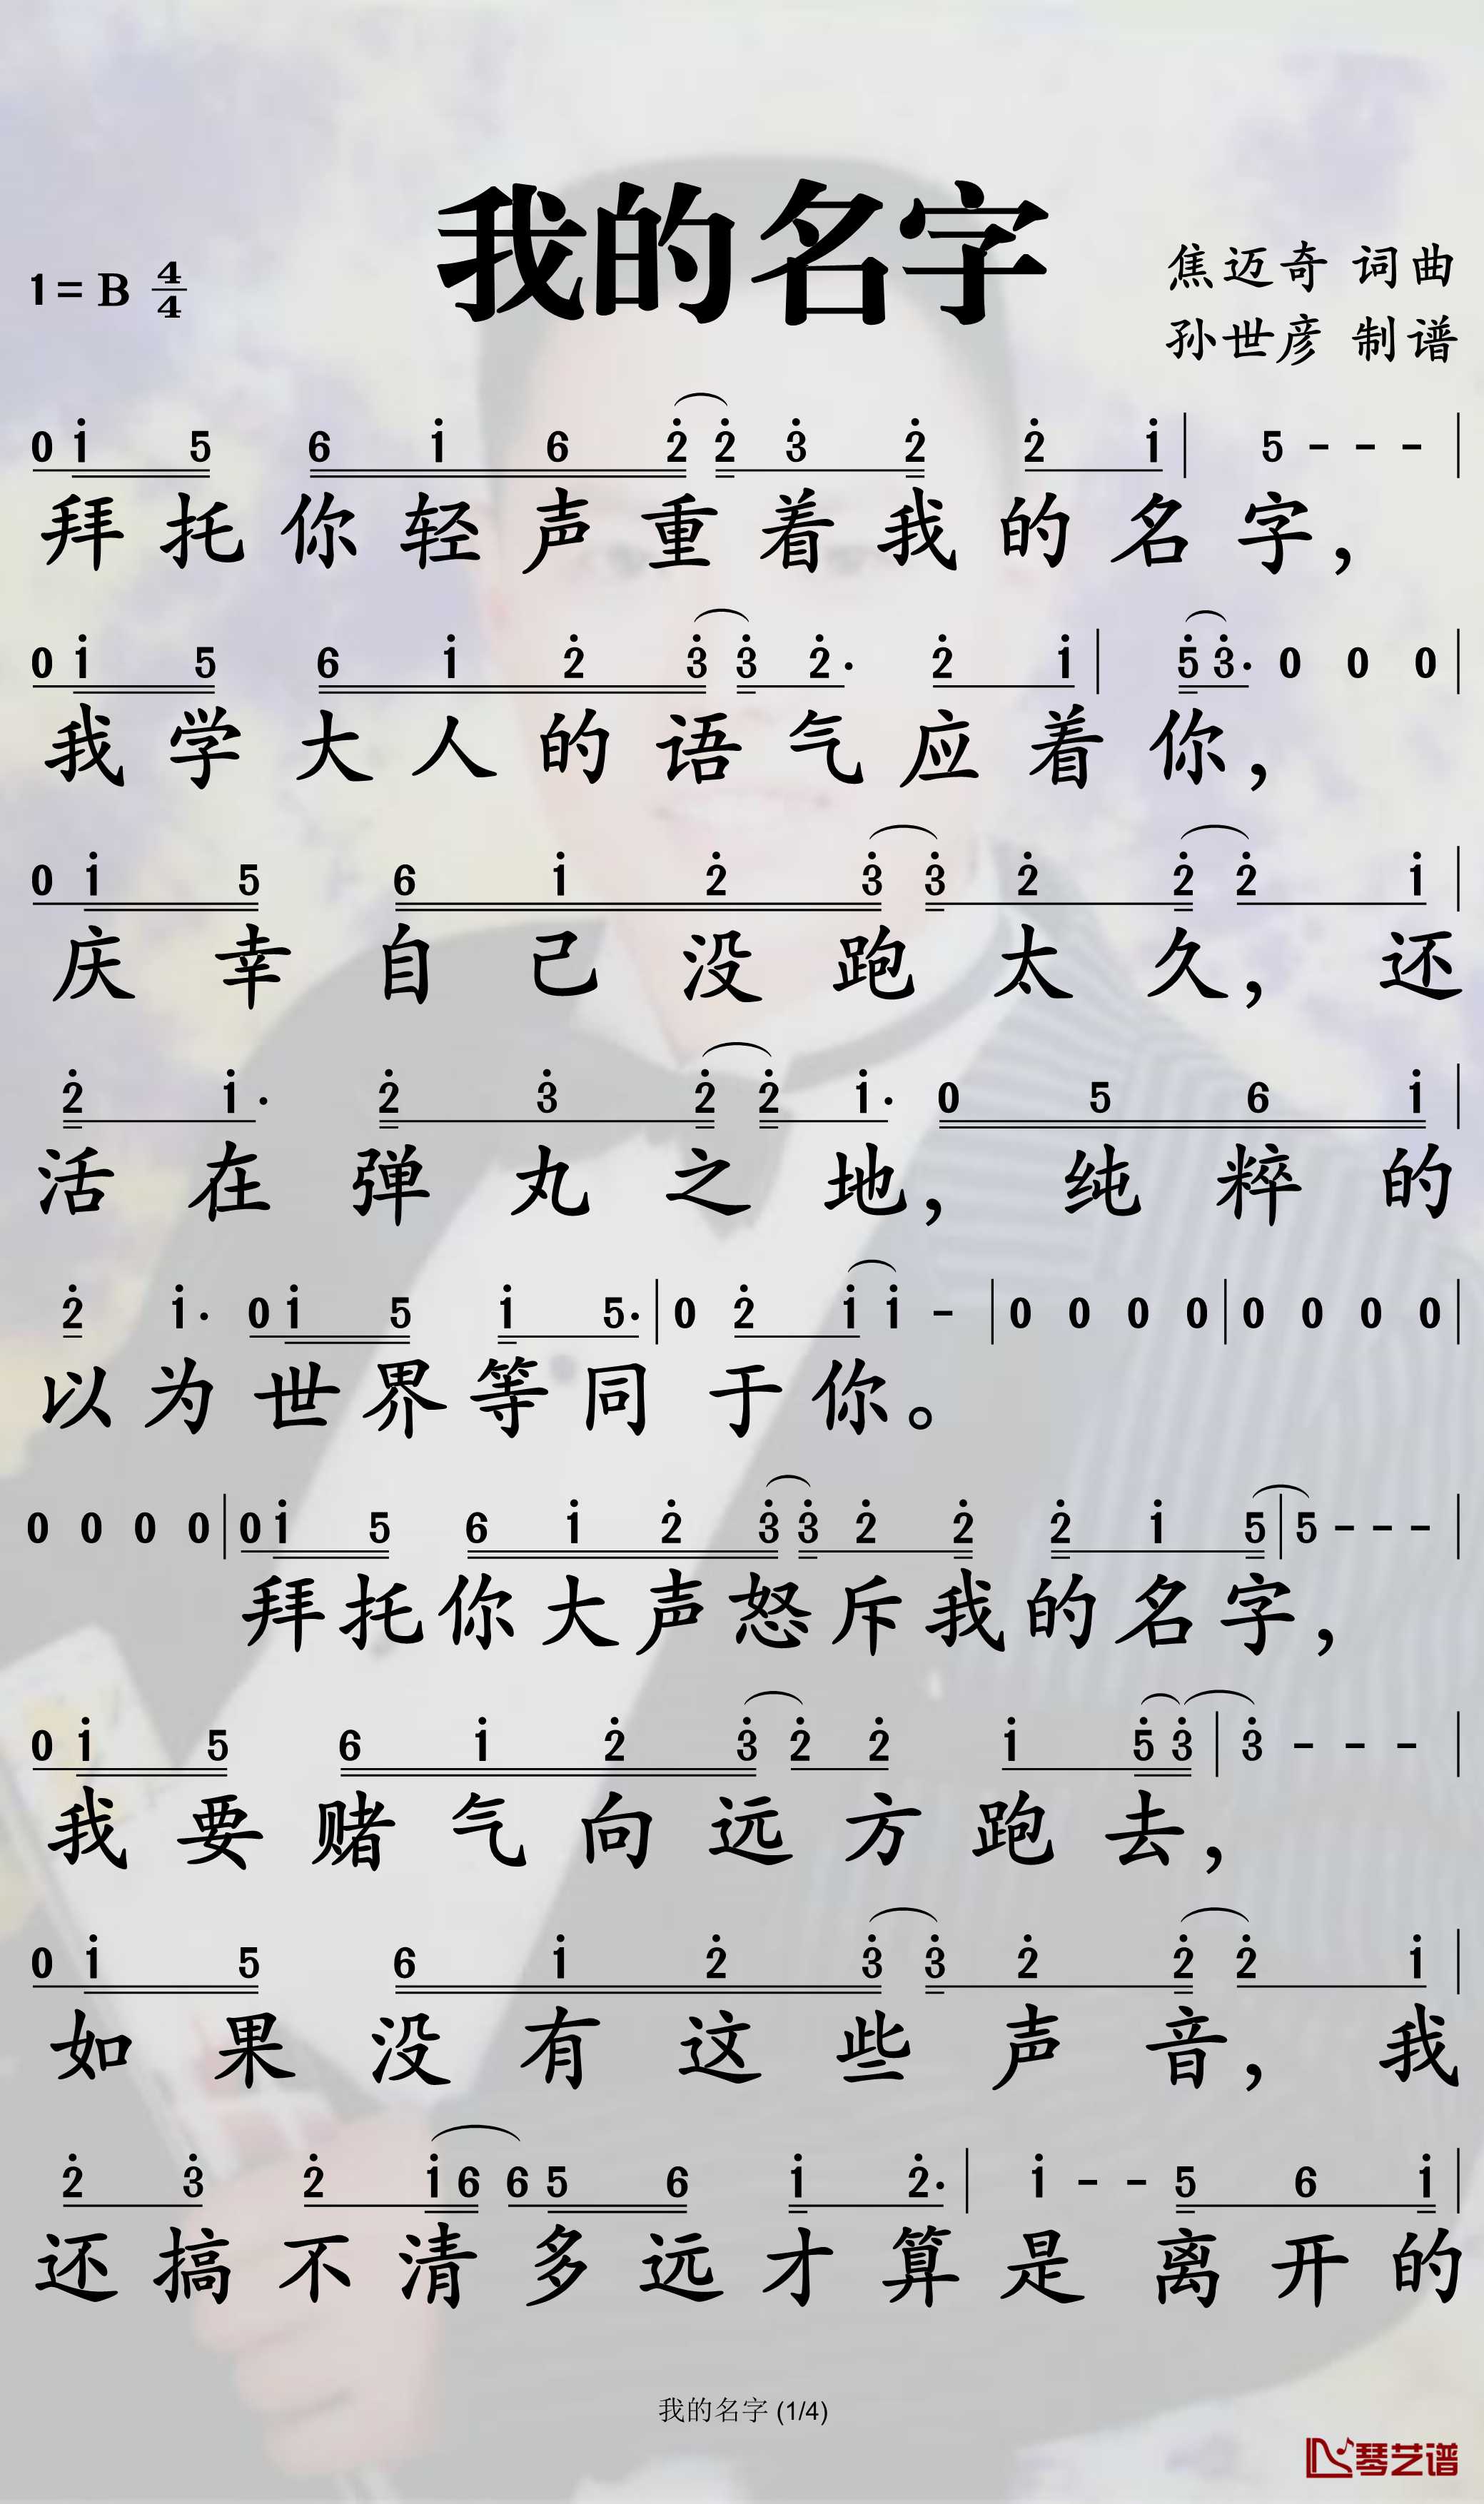 我的名字
1=B 4/4
焦迈奇 词曲
孙世彦 制谱
0 i 5 6 i 6 2̇ 2̇ 3̇ 2̇ 2̇ i | 5 - - - |
拜托你轻声重着我的名字，
0 i 5 6 i 2̇ 3̇ 3̇ 2̇· 2̇ i | 5̇ 3̇· 0 0 0 |
我学大人的语气应着你，
0 i 5 6 i 2̇ 3̇ 3̇ 2̇ 2̇ 2̇ i |
庆幸自己没跑太久，还
2̇ i· 2̇ 3̇ 2̇ 2̇ i· 0 5 6 i |
活在弹丸之地，纯粹的
2̇ i· 0 i 5 i 5· | 0 2̇ i i - | 0 0 0 0 | 0 0 0 0 |
以为世界等同于你。
0 0 0 0 | 0 i 5 6 i 2̇ 3̇ 3̇ 2̇ 2̇ 2̇ i 5̇ | 5 - - - |
拜托你大声怒斥我的名字，
0 i 5 6 i 2̇ 3̇ 2̇ 2̇ i 5̇ 3̇ | 3̇ - - - |
我要赌气向远方跑去，
0 i 5 6 i 2̇ 3̇ 3̇ 2̇ 2̇ 2̇ i |
如果没有这些声音，我
2̇ 3̇ 2̇ i 6 6 5 6 i 2̇· | i - - 5 6 i |
还搞不清多远才算是离开的
我的名字 (1/4)
琴艺谱